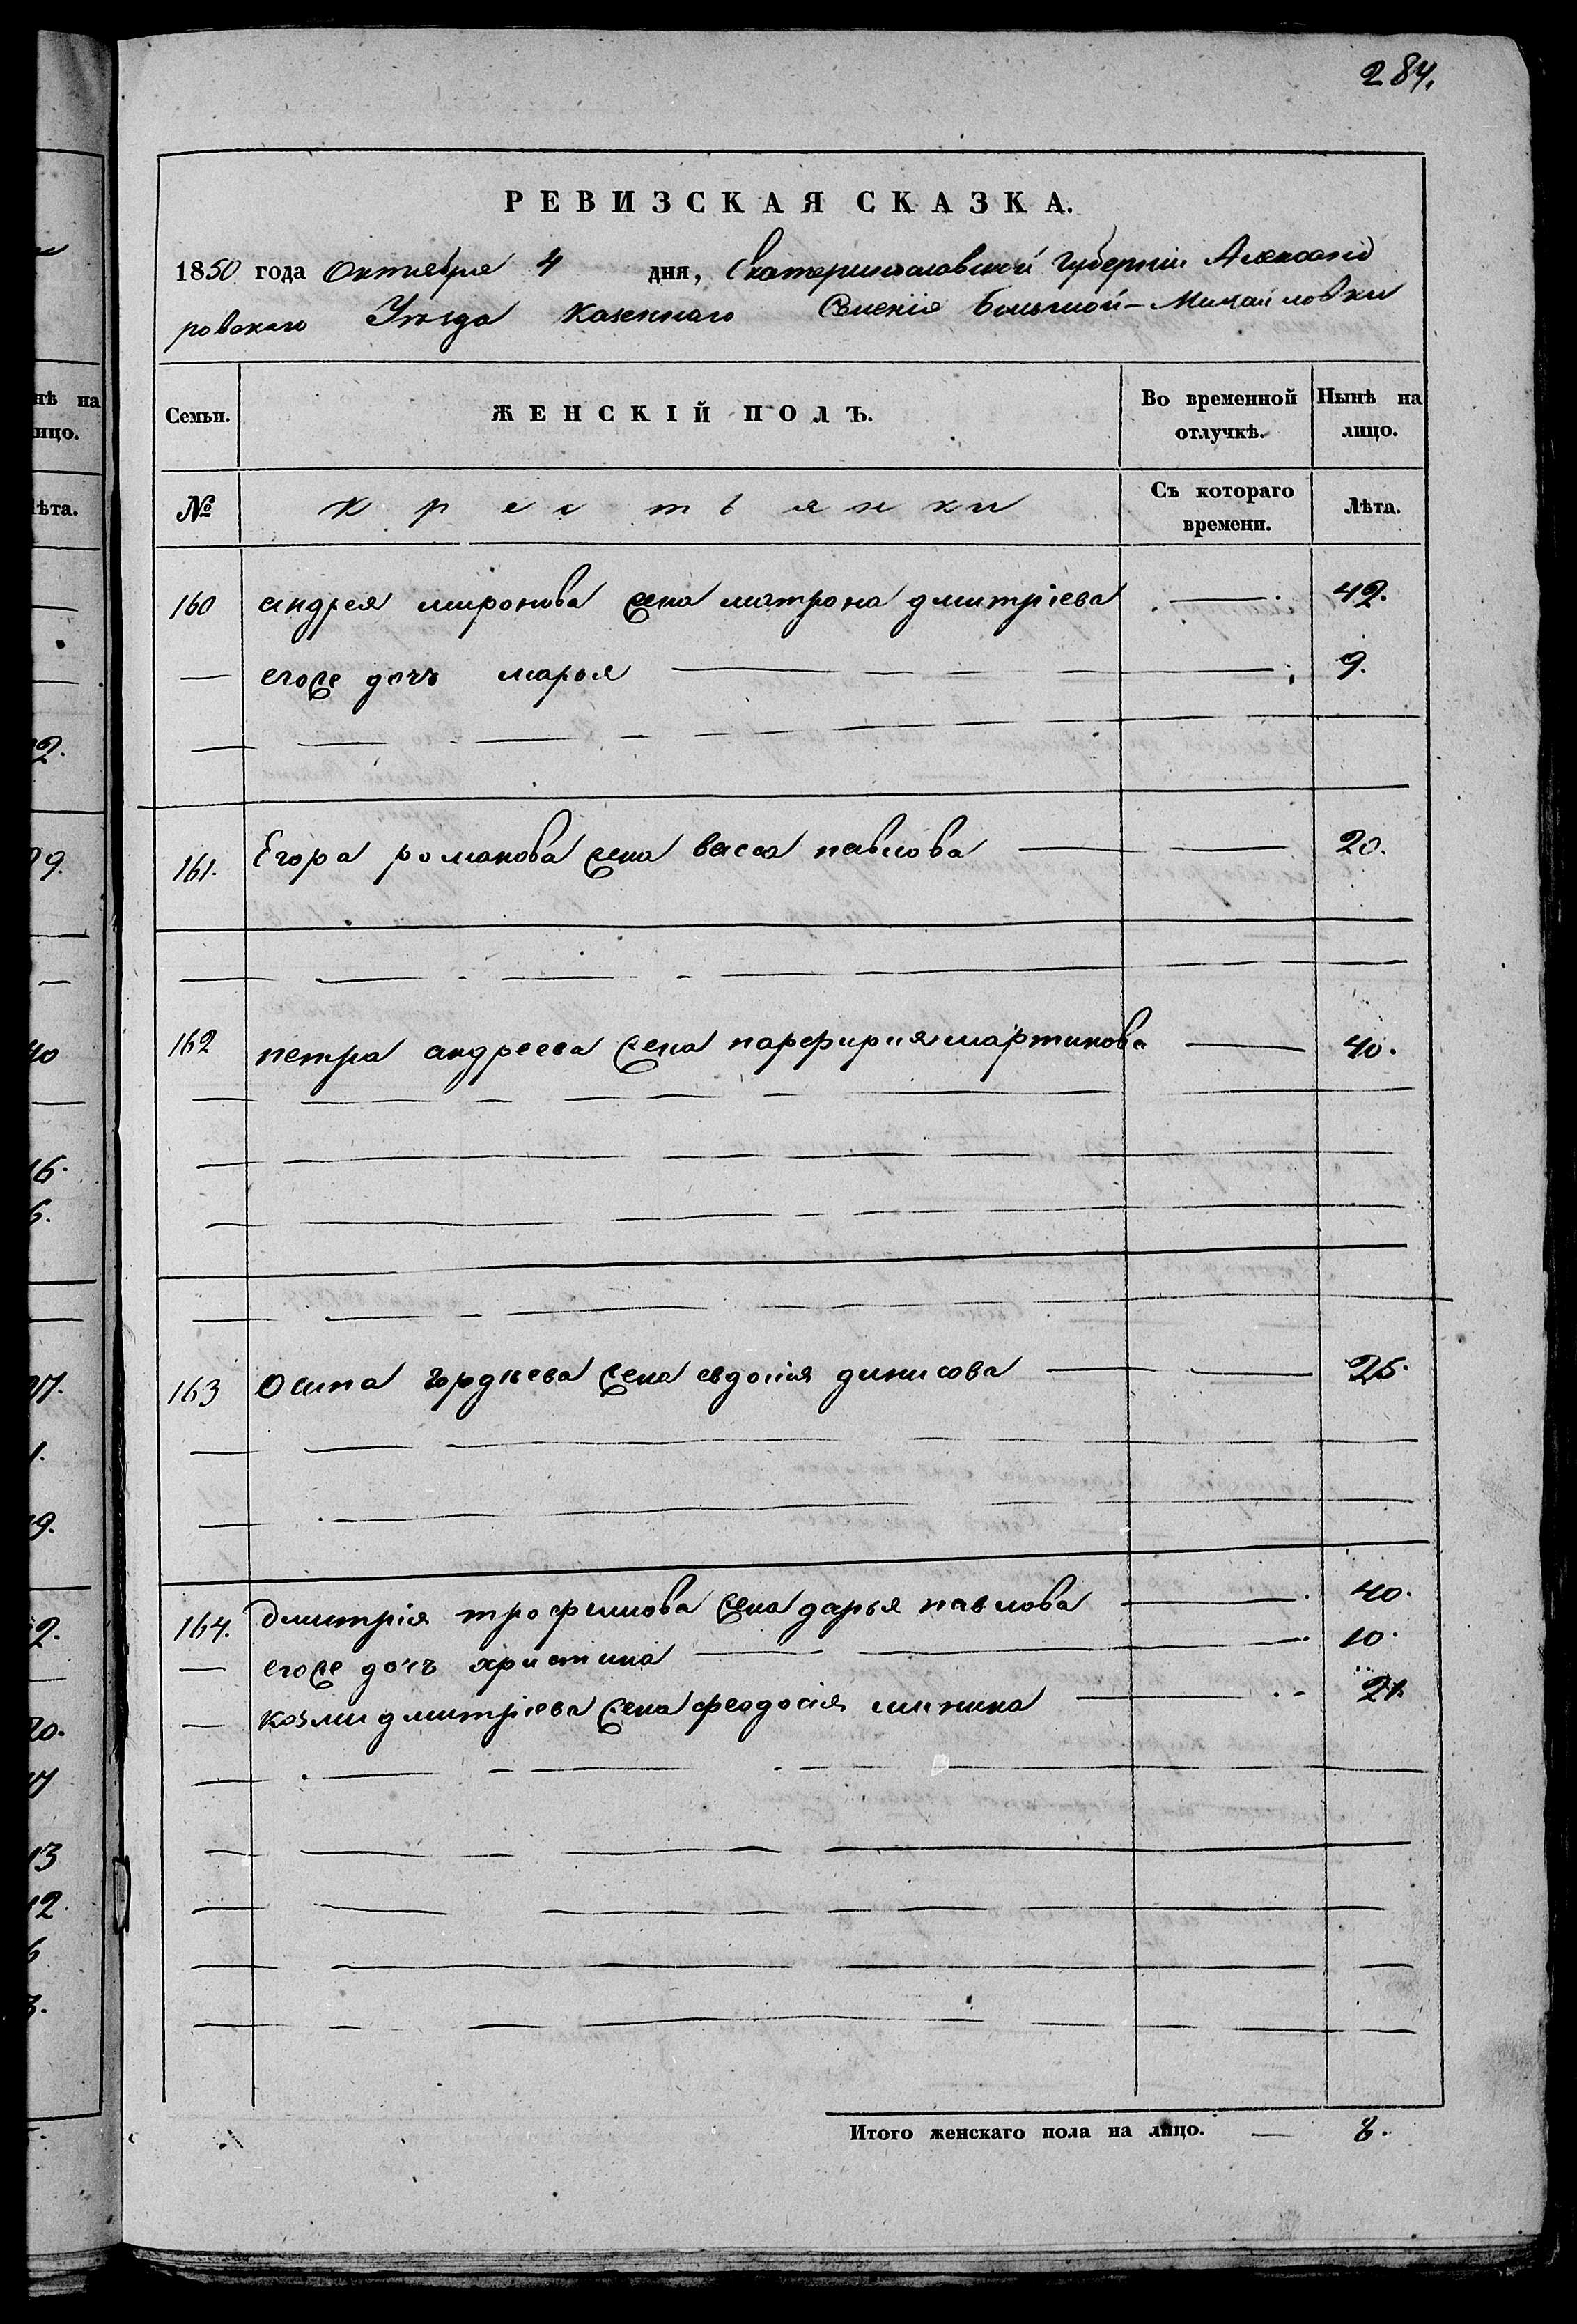 284.
РЕВИЗСКАЯ СКАЗКА.
1850 года Октября 4 дня, Екатеринославской Губерніи Александ
ровскаго Уѣзда Казеннаго Селенія Большой-Михайловки
Семьи. ЖЕНСКІЙ ПОЛЪ. Во временной отлучкѣ. Нынѣ на лицо.
№ крестьянки Съ котораго времени. Лѣта.
160 андрея миронова жена матрона дмитріева 42.
егоже дочъ марья 9.
161. Егора романова жена васса павлова 20.
162 петра андреева жена парфирия мартинова 40.
163 Осипа гордѣева жена евдокія динисова 25.
164. дмитрія трофимова жена дарья павлова 40.
егоже дочъ христина 10.
козми дмитріева жена феодосія минина 21.
Итого женскаго пола на лицо. 8.
нѣ на
ицо.
ѣта.
2.
9.
40
16.
6.
1.
9.
2.
20.
13
12
6
3.